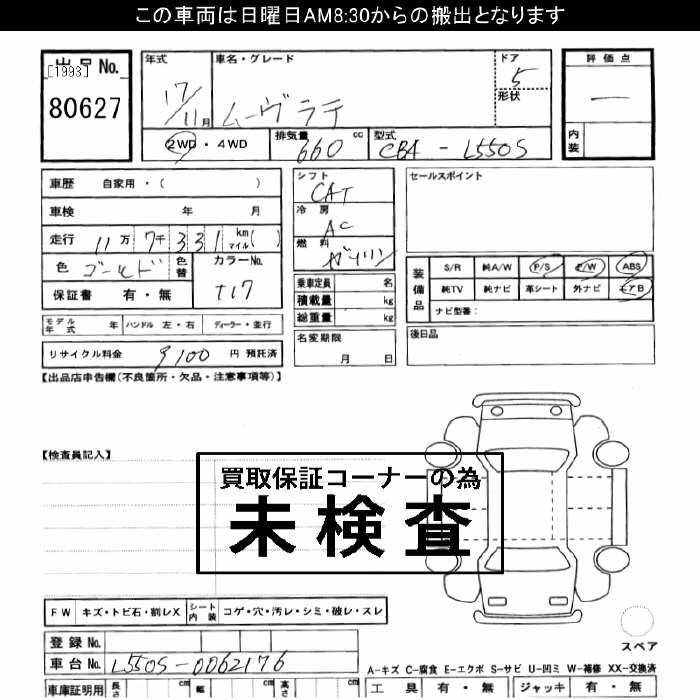 この車両は日曜日AM8:30からの搬出となります
出品No.
[1993]
80627
年式
17/11月
車名・グレード
ムーヴラテ
ドア
5
形状
評価点
―
内装
2WD・4WD
排気量
660 cc
型式
CBA - L550S
車歴 自家用・( )
車検 年 月
走行 11万 7千 3 3 1 km マイル( )
色 ゴールド 色替 カラーNo. T17
保証書 有・無
モデル年式 年 ハンドル 左・右 ディーラー・並行
リサイクル料金 9100 円 預託済
シフト
CAT
冷房
AC
燃料
ガソリン
乗車定員 名
積載量 kg
総重量 kg
名変期限
月 日
セールスポイント
装備品
S/R 純A/W P/S P/W ABS
純TV 純ナビ 革シート 外ナビ エアB
ナビ型番:
後日品
【出品店申告欄(不良箇所・欠品・注意事項等)】
【検査員記入】
買取保証コーナーの為
未検査
FW キズ・トビ石・割レX シート内装 コゲ・穴・汚レ・シミ・破レ・スレ
登録No.
車台No. L550S-0062176
車庫証明用 長さ cm 幅 cm 高さ cm
スペア
A-キズ C-腐食 E-エクボ S-サビ U-凹ミ W-補修 XX-交換済
工具 有・無 ジャッキ 有・無